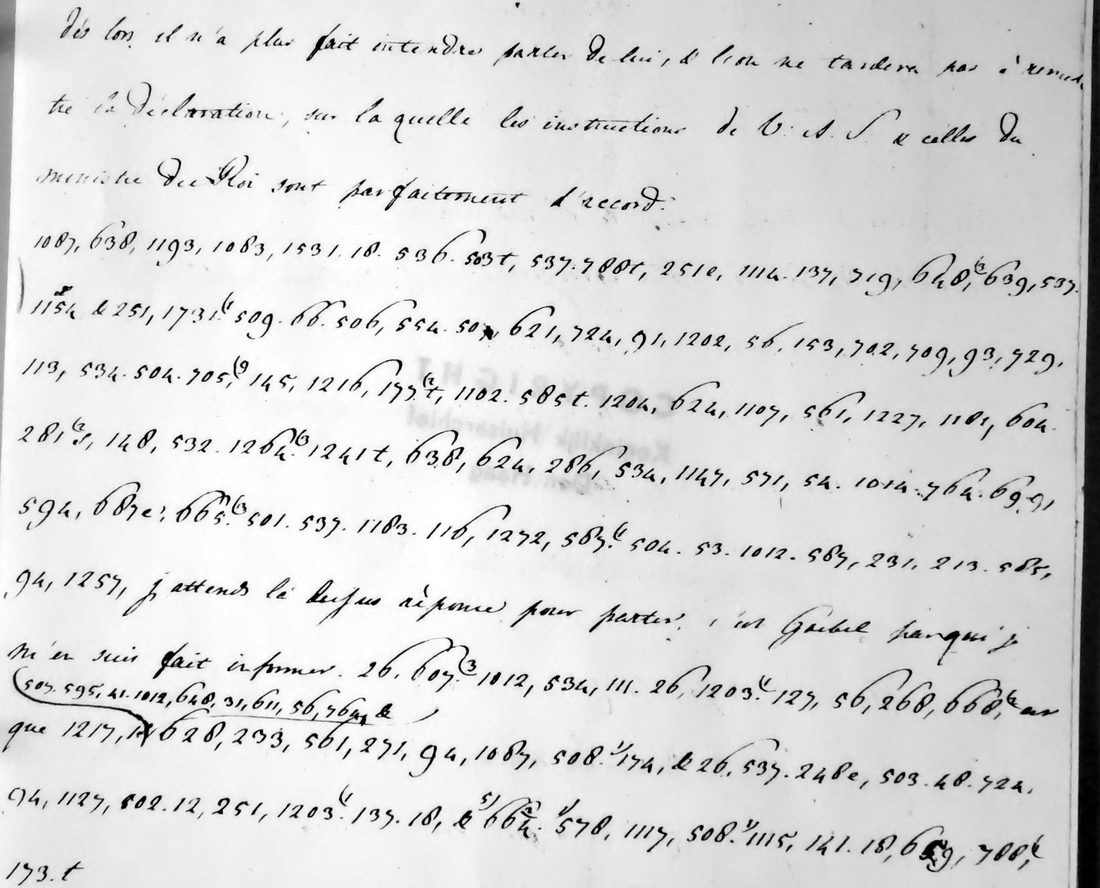 dès lors il n'a plus fait intendre parler de lui, & l'on ne tardera pas à remet
tre la déclaration, sur la quelle les instructions de V. A. S. & celles du
ministre du Roi sont parfaitement d'accord.
1087, 638, 1193, 1083, 1531. 18. 536. 503t, 537. 788t, 251e, 1114. 137, 719, 648,(3 639, 537.
1154 & 251, 1731(1 509. 66. 506, 554. 621, 724, 91, 1202, 56, 153, 702, 709, 93, 729,
113, 534. 504. 705,(9 145, 1216, 177(3t, 1102. 585t. 1204, 624, 1107, 561, 1227, 604.
281(3s, 148, 532. 1264(3 1241t, 638, 624, 286, 534, 1147, 571, 54. 1014. 764. 699,
594, 687e, 665(3 501. 537. 1183. 116, 1272, 587.(1 504. 53. 1012. 587, 231. 213. 585,
94, 1257, j'attends là dessus réponse pour parler. c'est Goebel par qui je
m'en suis fait informer. 26. 607.(3 1012, 534, 111. 26, 1203(1 127, 56, 268, 668,
507. 595, 41. 1012, 648, 31, 611, 56, 764, &
que 1217, 628, 233, 561, 271, 94, 1087, 508.(1 174, & 26, 537. 248e, 503. 48. 724.
94, 1127, 502. 12, 251, 1203(1 137. 18, & 578, 1117, 508.(1 1115, 141. 18, 788,(
173.t
COPYRIGHT
Koninklijk Huisarchief
Den Haag